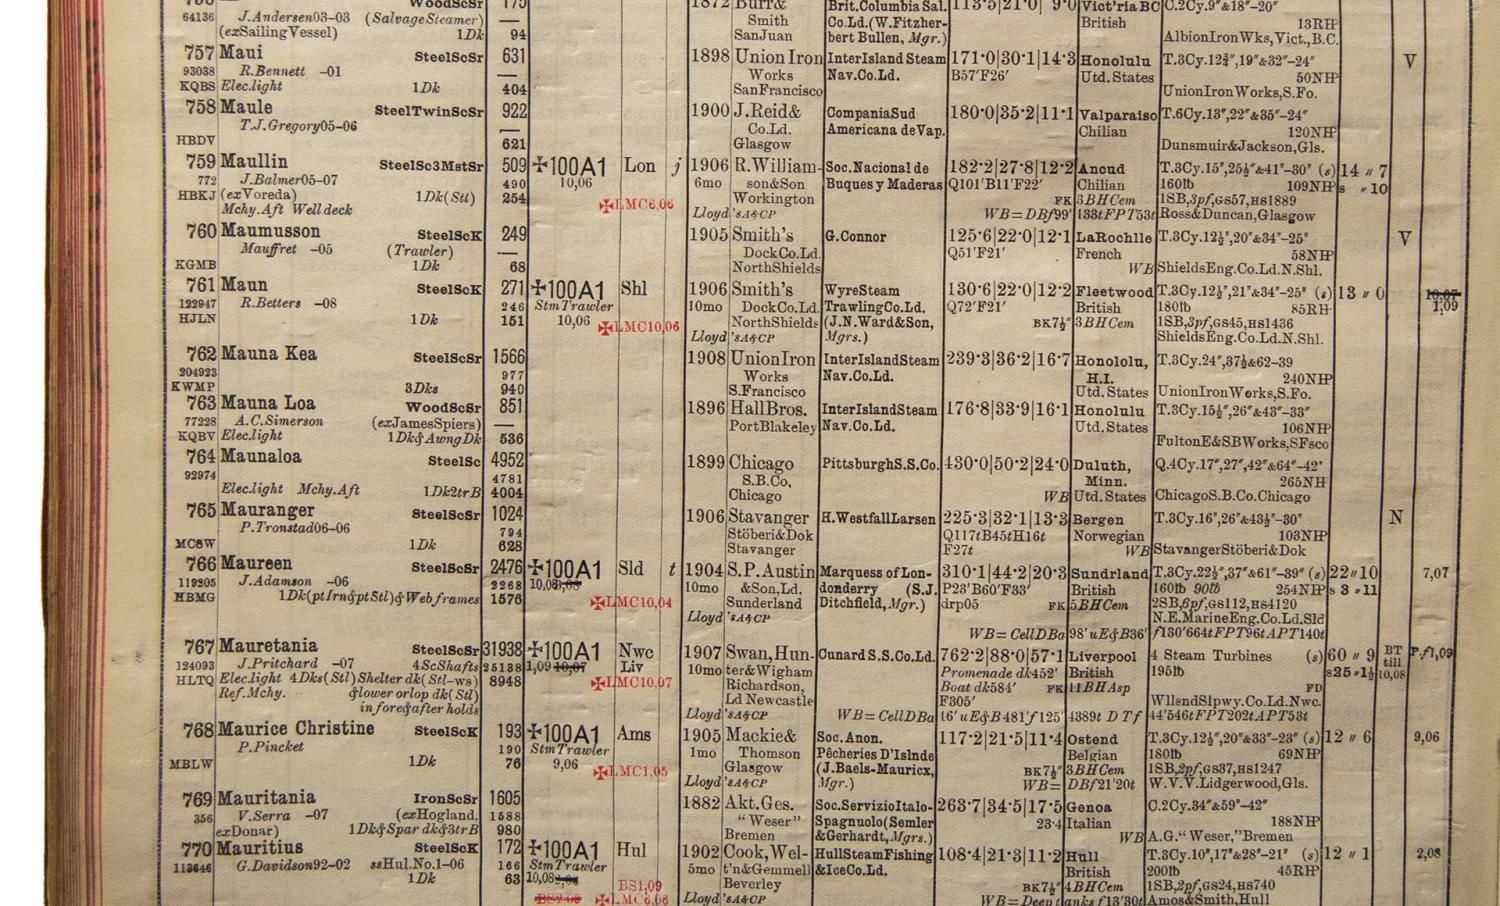 64136 J.Andersen03–03 (SalvageSteamer) Smith Co.Ld.(W.Fitzher- British 13RH
(exSailingVessel) 1Dk 94 SanJuan bert Bullen, Mgr.) AlbionIronWks,Vict.,B.C.
757 Maui SteelScSr 631 1898 Union Iron InterIsland Steam 171·0|30·1|14·3 Honolulu T.3Cy.12¾",19"&32"–24" V
93038 R.Bennett –01 — Works Nav.Co.Ld. B57'F26' Utd.States 50NH
KQBS Elec.light 1Dk 404 SanFrancisco UnionIronWorks,S.Fo.
758 Maule SteelTwinScSr 922 1900 J.Reid& CompaniaSud 180·0|35·2|11·1 Valparaiso T.6Cy.13",22"&35"–24"
T.J.Gregory05–06 — Co.Ld. Americana deVap. Chilian 120NH
HBDV 621 Glasgow Dunsmuir&Jackson,Gls.
759 Maullin SteelSc3MstSr 509 ✠100A1 Lon j 1906 R.William- Soc.Nacional de 182·2|27·8|12·2 Ancud T.3Cy.15",25½"&41"–30" (s) 14 " 7
772 J.Balmer05–07 490 10,06 6mo son&Son Buques y Maderas Q101'B11'F22' Chilian 160lb 109NH s " 10
HBKJ (exVoreda) 1Dk(Stl) 254 ✠LMC6,06 Workington FK 3BHCem 1SB,3pf,GS57,HS1889
Mchy.Aft Well deck Lloyd'sA&CP WB=DBf99' 133tFPT53t Ross&Duncan,Glasgow
760 Maumusson SteelScK 249 1905 Smith's G.Connor 125·6|22·0|12·1 LaRochlle T.3Cy.12½",20"&34"–25" V
Mauffret –05 (Trawler) — DockCo.Ld. Q51'F21' French 58NH
KGMB 1Dk 68 NorthShields WB ShieldsEng.Co.Ld.N.Shl.
761 Maun SteelScK 271 ✠100A1 Shl 1906 Smith's WyreSteam 130·6|22·0|12·2 Fleetwood T.3Cy.12½",21"&34"–25" (s) 13 " 0 10,07
122947 R.Betters –08 246 StmTrawler 10mo DockCo.Ld. TrawlingCo.Ld. Q72'F21' British 180lb 85RH 1,09
HJLN 1Dk 151 10,06 ✠LMC10,06 NorthShields (J.N.Ward&Son, BK7½" 3BHCem 1SB,3pf,GS45,HS1436
Lloyd'sA&CP Mgrs.) ShieldsEng.Co.Ld.N.Shl.
762 Mauna Kea SteelScSr 1566 1908 UnionIron InterIslandSteam 239·3|36·2|16·7 Honolulu, T.3Cy.24",37½&62–39
204923 977 Works Nav.Co.Ld. H.I. 240NH
KWMP 3Dks 940 S.Francisco Utd.States UnionIronWorks,S.Fo.
763 Mauna Loa WoodScSr 851 1896 HallBros. InterIslandSteam 176·8|33·9|16·1 Honolulu T.3Cy.15½",26"&43"–33"
77228 A.C.Simerson (exJamesSpiers) — PortBlakeley Nav.Co.Ld. Utd.States 106NH
KQBV Elec.light 1Dk&AwngDk 536 FultonE&SBWorks,SFsco
764 Maunaloa SteelSc 4952 1899 Chicago PittsburghS.S.Co. 430·0|50·2|24·0 Duluth, Q.4Cy.17",27",42"&64"–42"
92974 4781 S.B.Co, Minn. 265NH
Elec.light Mchy.Aft 1Dk2trB 4004 Chicago WB Utd.States ChicagoS.B.Co.Chicago
765 Mauranger SteelScSr 1024 1906 Stavanger H.WestfallLarsen 225·3|32·1|13·3 Bergen T.3Cy.16",26"&43½"–30" N
P.Tronstad06–06 794 Stöberi&Dok Q117tB45tH16t Norwegian 103NH
MCSW 1Dk 628 Stavanger F27t WB StavangerStöberi&Dok
766 Maureen SteelScSr 2476 ✠100A1 Sld t 1904 S.P.Austin Marquess of Lon- 310·1|44·2|20·3 Sundrland T.3Cy.22½",37"&61"–39" (s) 22"10 7,07
119205 J.Adamson –06 2268 10,08 10mo &Son,Ld. donderry (S.J. P23'B60'F33' British 160lb 90lb 254NH s 3 "11
HBMG 1Dk(ptIrn&ptStl)&Webframes 1576 ✠LMC10,04 Sunderland Ditchfield,Mgr.) drp05 FK 5BHCem 2SB,6pf,GS112,HS4120
Lloyd'sA&CP N.E.MarineEng.Co.Ld.Sld
WB=CellDBa 98'uE&B36' f130'664tFPT96tAPT140t
767 Mauretania SteelScSr 31938 ✠100A1 Nwc 1907 Swan,Hun- Cunard S.S.Co.Ld. 762·2|88·0|57·1 Liverpool 4 Steam Turbines (s) 60 " 9 BT P.f1,09
124093 J.Pritchard –07 4ScShafts 25138 1,09 10,07 Liv 10mo ter&Wigham Promenade dk452' British 195lb s25"1½ till
HLTQ Elec.light 4Dks(Stl)Shelter dk(Stl–ws) 8948 ✠LMC10,07 Richardson, Boat dk584' FK 11BHAsp FD 10,08
Ref.Mchy. &lower orlop dk(Stl) Ld Newcastle F305' WllsndSlpwy.Co.Ld.Nwc.
infore&after holds Lloyd'sA&CP WB=CellDBa 16'uE&B481'f125' 4389t D Tf 44'546tFPT202tAPT53t
768 Maurice Christine SteelScK 193 ✠100A1 Ams 1905 Mackie& Soc.Anon. 117·2|21·5|11·4 Ostend T.3Cy.12½",20"&33"–23" (s) 12 " 6 9,06
P.Pincket 190 StmTrawler 1mo Thomson Pêcheries D'Islnde Belgian 180lb 69NH
MBLW 1Dk 76 9,06 ✠LMC1,05 Glasgow (J.Baels-Mauricx, BK7½" 3BHCem 1SB,2pf,GS37,HS1247
Lloyd'sA&CP Mgr.) WB= DBf21'20t W.V.V.Lidgerwood,Gls.
769 Mauritania IronScSr 1605 1882 Akt.Ges. Soc.ServizioItalo- 263·7|34·5|17·5 Genoa C.2Cy.34"&59"–42"
356 V.Serra –07 (exHogland. 1588 "Weser" Spagnuolo(Semler 23·4 Italian 188NH
exDonar) 1Dk&Spar dk&3trB 980 Bremen &Gerhardt,Mgrs.) WB A.G."Weser,"Bremen
770 Mauritius SteelScK 172 ✠100A1 Hul 1902 Cook,Wel- HullSteamFishing 108·4|21·3|11·2 Hull T.3Cy.10",17"&28"–21" (s) 12 " 1 2,08
113646 G.Davidson92–02 ssHul.No.1–06 166 StmTrawler 5mo t'n&Gemmell &IceCo.Ld. British 200lb 45RH
1Dk 63 10,08 BS1,09 Beverley BK7½" 4BHCem 1SB,2pf,GS24,HS740
✠LMC6,06 Lloyd'sA&CP WB=Deep tanks f13'30t Amos&Smith,Hull